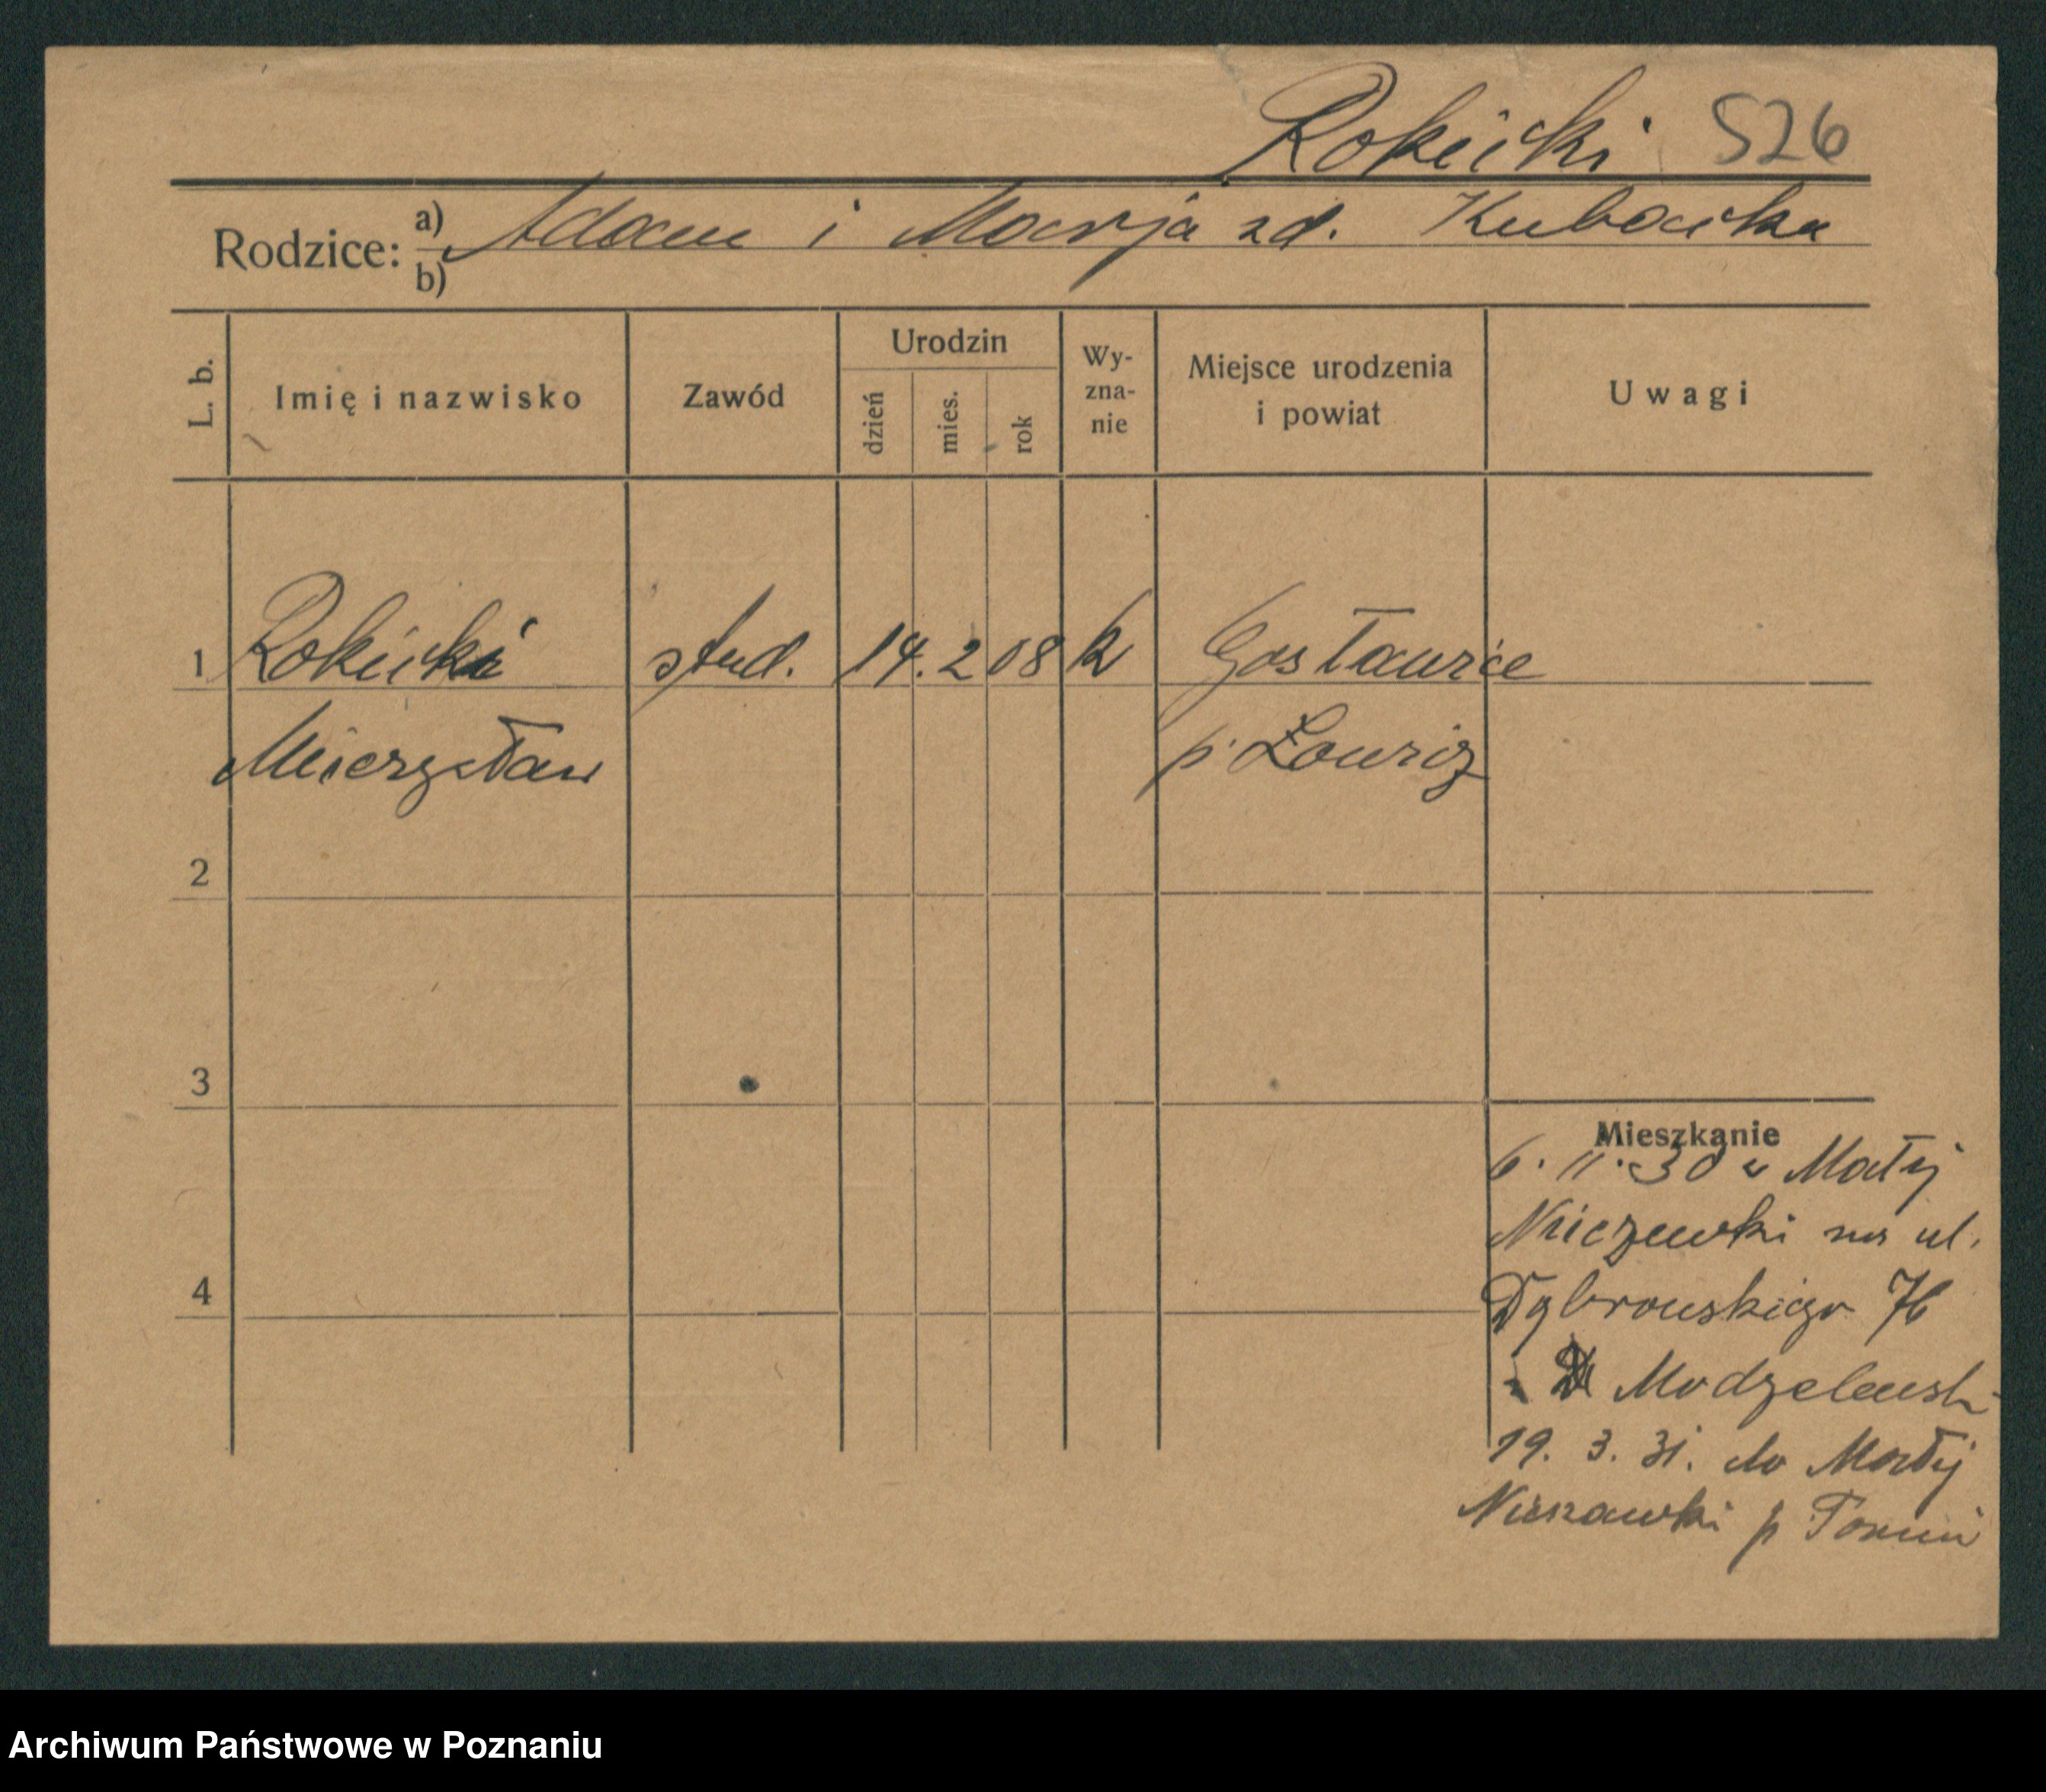 Rokicki 526
Rodzice: a) Adam i Marja zd. Kubacka
b)
L. b.
Imię i nazwisko
Zawód
Urodzin
dzień
mies.
rok
Wy-
zna-
nie
Miejsce urodzenia
i powiat
Uwagi
1 Rokicki stud. 14. 2 08 k Gosławice
Mieczysław p. Łowicz
2
3
4
Mieszkanie
6. 11. 30 z Małej
na ul.
Dąbrowskiego 76
Modzelewski
19. 3. 31. do Małej
Nieszawki p Toruń
Archiwum Państwowe w Poznaniu